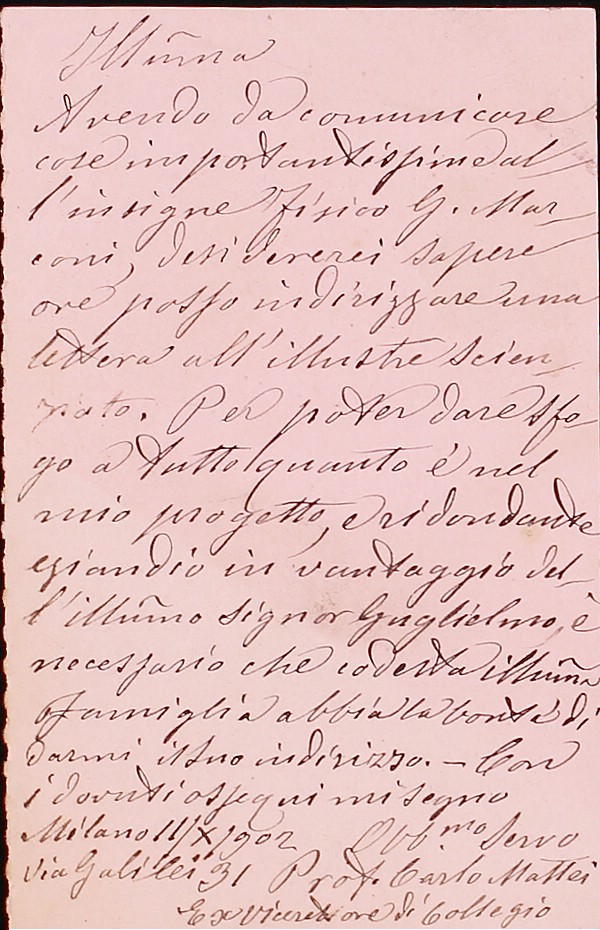 Illũma
Avendo da comunicare
cose importantissime al-
l'insigne fisico G. Mar-
coni, desidererei sapere
ove posso indirizzare una
lettera all'illustre scien-
ziato. Per poter dare sfo-
go a tutto quanto è nel
mio progetto, e ridondante
eziandio in vantaggio del-
l'illũmo signor Guglielmo, è
necessario che codesta illũma
famiglia abbia la bontà di
darmi il suo indirizzo. — Con
i dovuti ossequi mi segno
Milano 11/X/902 Obb.mo Servo
Via Galilei 31 Prof. Carlo Mattei
Ex Vicerettore di Collegio